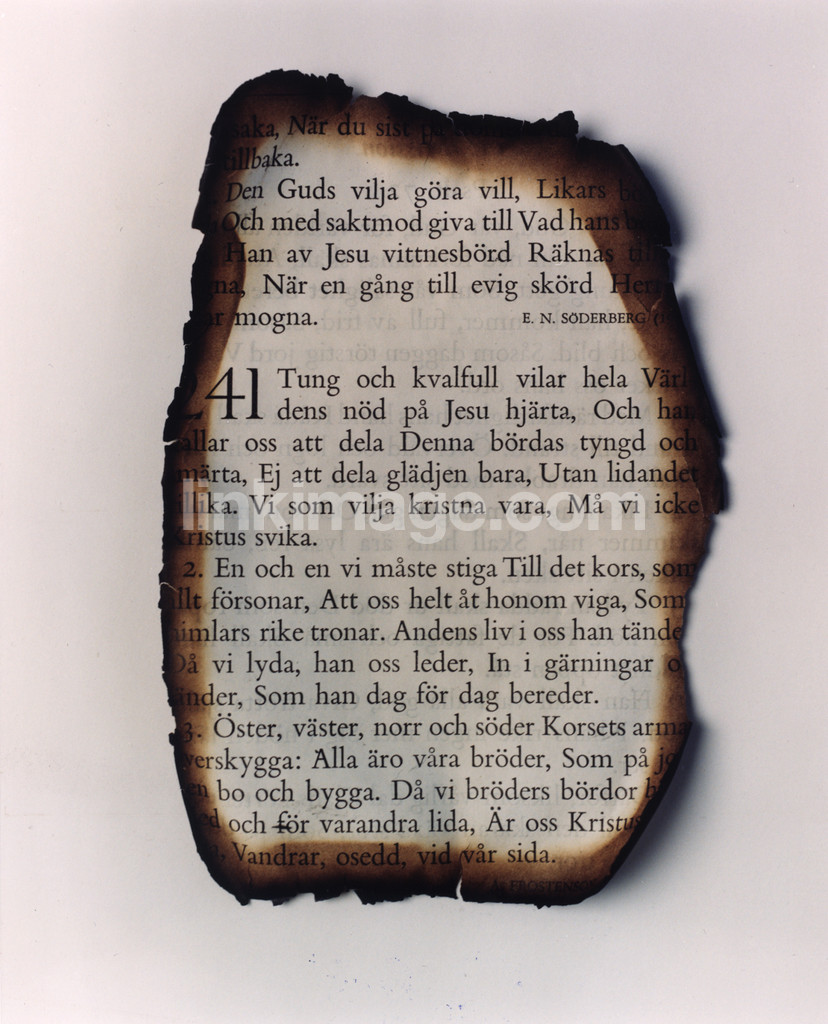 saka, När du sist på
illbaka.
Den Guds vilja göra vill, Likars
Och med saktmod giva till Vad hans
Han av Jesu vittnesbörd Räknas
na, När en gång till evig skörd Her
ar mogna.
E. N. SÖDERBERG
241 Tung och kvalfull vilar hela Värl
dens nöd på Jesu hjärta, Och han
allar oss att dela Denna bördas tyngd och
märta, Ej att dela glädjen bara, Utan lidandet
illika. Vi som vilja kristna vara, Må vi icke
Kristus svika.
linkimage.com
2. En och en vi måste stiga Till det kors, som
llt försonar, Att oss helt åt honom viga, Som
imlars rike tronar. Andens liv i oss han tände
Då vi lyda, han oss leder, In i gärningar o
änder, Som han dag för dag bereder.
3. Öster, väster, norr och söder Korsets arma
verskygga: Alla äro våra bröder, Som på jo
en bo och bygga. Då vi bröders bördor b
ed och för varandra lida, Är oss Kristus
Vandrar, osedd, vid vår sida.
A. FROSTENSON